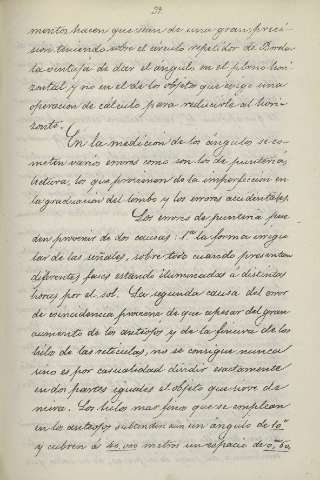 mentos hacen que sean de una gran preci
sion teniendo sobre el círculo repetidor de Borda
la ventaja de dar el ángulo en el plano hori
zontal y no en el de los objetos que exige una
operacion de cálculo para reducirle al hori
zonte.
En la medicion de los ángulos se co-
meten varios errores como son los de punteria,
lectura, los que provienen de la imperfeccion en
la graduacion del limbo y los errores accidentales.
Los errores de punteria pue
den provenir de dos causas: 1ª la forma irregu
lar de las señales, sobre todo cuando presentan
diferentes fases estando iluminadas a distintas
horas por el sol. La segunda causa del error
de coincidencia proviene de que apesar del gran
aumento de los anteojos y de la finura de los
hilos de las retículas, no se consigue nunca
sino es por casualidad dividir exactamente
en dos partes iguales el objeto que sirve de
mira. Los hilos mas finos que se emplean
en los anteojos subtienden aun un ángulo de
y cubren á 40,000 metros un espacio de